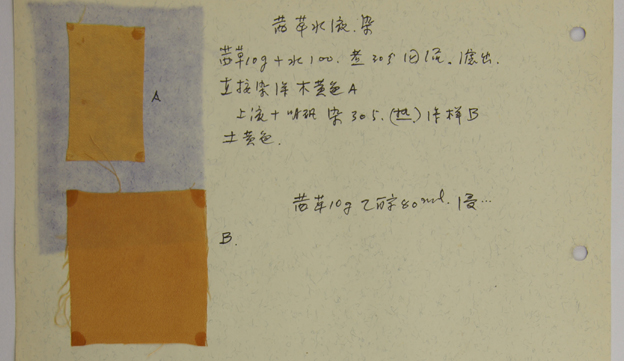 茜草水液.染
茜草10g+水100.煮30分回流。滤出.
直接染样 木黄色A
A
上液+明矾 染30分.(热)作样B
土黄色.
茜草10g乙醇80ml.浸…
B.